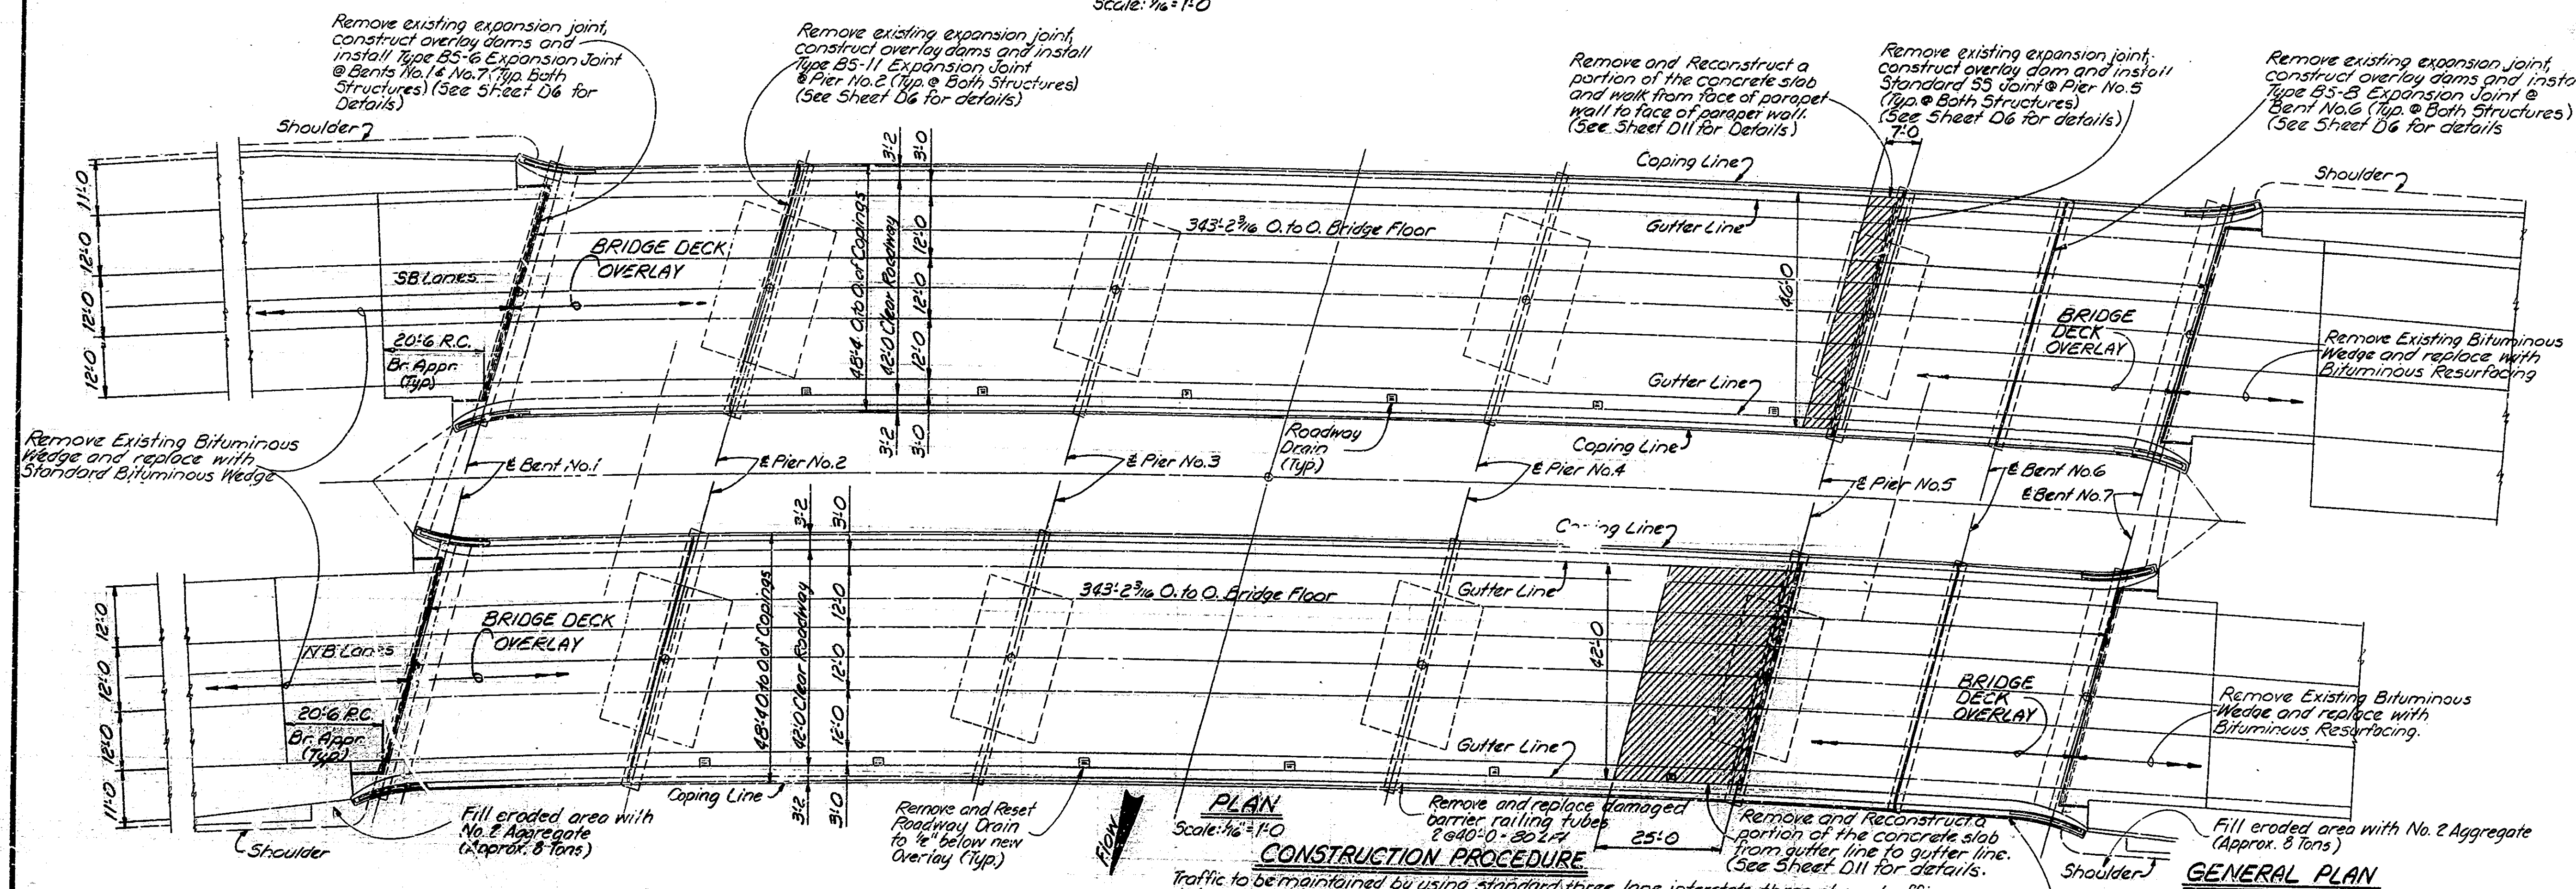 Scale: 1/16"=1'-0
Remove existing expansion joint,
construct overlay dams and
install Type BS-6 Expansion Joint
@ Bents No.1 & No.7 (Typ. Both
Structures) (See Sheet D6 for
Details)
Remove existing expansion joint,
construct overlay dams and install
Type BS-11 Expansion Joint
@ Pier No.2 (Typ. @ Both Structures)
(See Sheet D6 for details)
Remove and Reconstruct a
portion of the concrete slab
and walk from face of parapet
wall to face of parapet wall.
(See Sheet D11 for Details)
Remove existing expansion joint,
construct overlay dam and install
Standard SS Joint @ Pier No.5
(Typ. @ Both Structures)
(See Sheet D6 for details)
7'-0
Remove existing expansion joint,
construct overlay dams and insta
Type BS-8 Expansion Joint @
Bent No.6 (Typ. @ Both Structures)
(See Sheet D6 for details
Shoulder
Coping Line
Shoulder
11'-0
12'-0
12'-0
12'-0
3'-2
3'-0
48'-4 O. to O. of Copings
42'-0 Clear Roadway
12'-0
12'-0
12'-0
3'-2
3'-0
343'-2 3/16 O. to O. Bridge Floor
Gutter Line
46'-0
BRIDGE DECK
OVERLAY
SB Lanes
20'-6 R.C.
Br. Appr.
(Typ)
BRIDGE
DECK
OVERLAY
Remove Existing Bituminous
Wedge and replace with
Bituminous Resurfacing
Gutter Line
Roadway
Drain
(Typ.)
Coping Line
Remove Existing Bituminous
Wedge and replace with
Standard Bituminous Wedge
℄ Bent No.1
℄ Pier No.2
℄ Pier No.3
℄ Pier No.4
℄ Pier No.5
℄ Bent No.6
℄ Bent No.7
3'-2
3'-0
Line
343'-2 3/16 O. to O. Bridge Floor
Gutter Line
42'-0
12'-0
12'-0
12'-0
11'-0
48'-4 O. to O. of Copings
42'-0 Clear Roadway
12'-0
12'-0
12'-0
3'-2
3'-0
BRIDGE DECK
OVERLAY
N.B. Lanes
20'-6 R.C.
Br. Appr.
(Typ)
BRIDGE
DECK
OVERLAY
Remove Existing Bituminous
Wedge and replace with
Bituminous Resurfacing.
Gutter Line
Coping Line
Shoulder
Fill eroded area with
No. 2 Aggregate
(Approx. 8 Tons)
Remove and Reset
Roadway Drain
to 1/2" below new
Overlay (Typ.)
Flow
PLAN
Scale: 1/16"=1'-0
Remove and replace damaged
barrier railing tubes
2@40'-0 = 80 LFt
25'-0
Remove and Reconstruct a
portion of the concrete slab
from gutter line to gutter line.
(See Sheet D11 for details.
Shoulder
Fill eroded area with No. 2 Aggregate
(Approx. 8 Tons)
GENERAL PLAN
CONSTRUCTION PROCEDURE
Traffic to be maintained by using standard three lane interstate